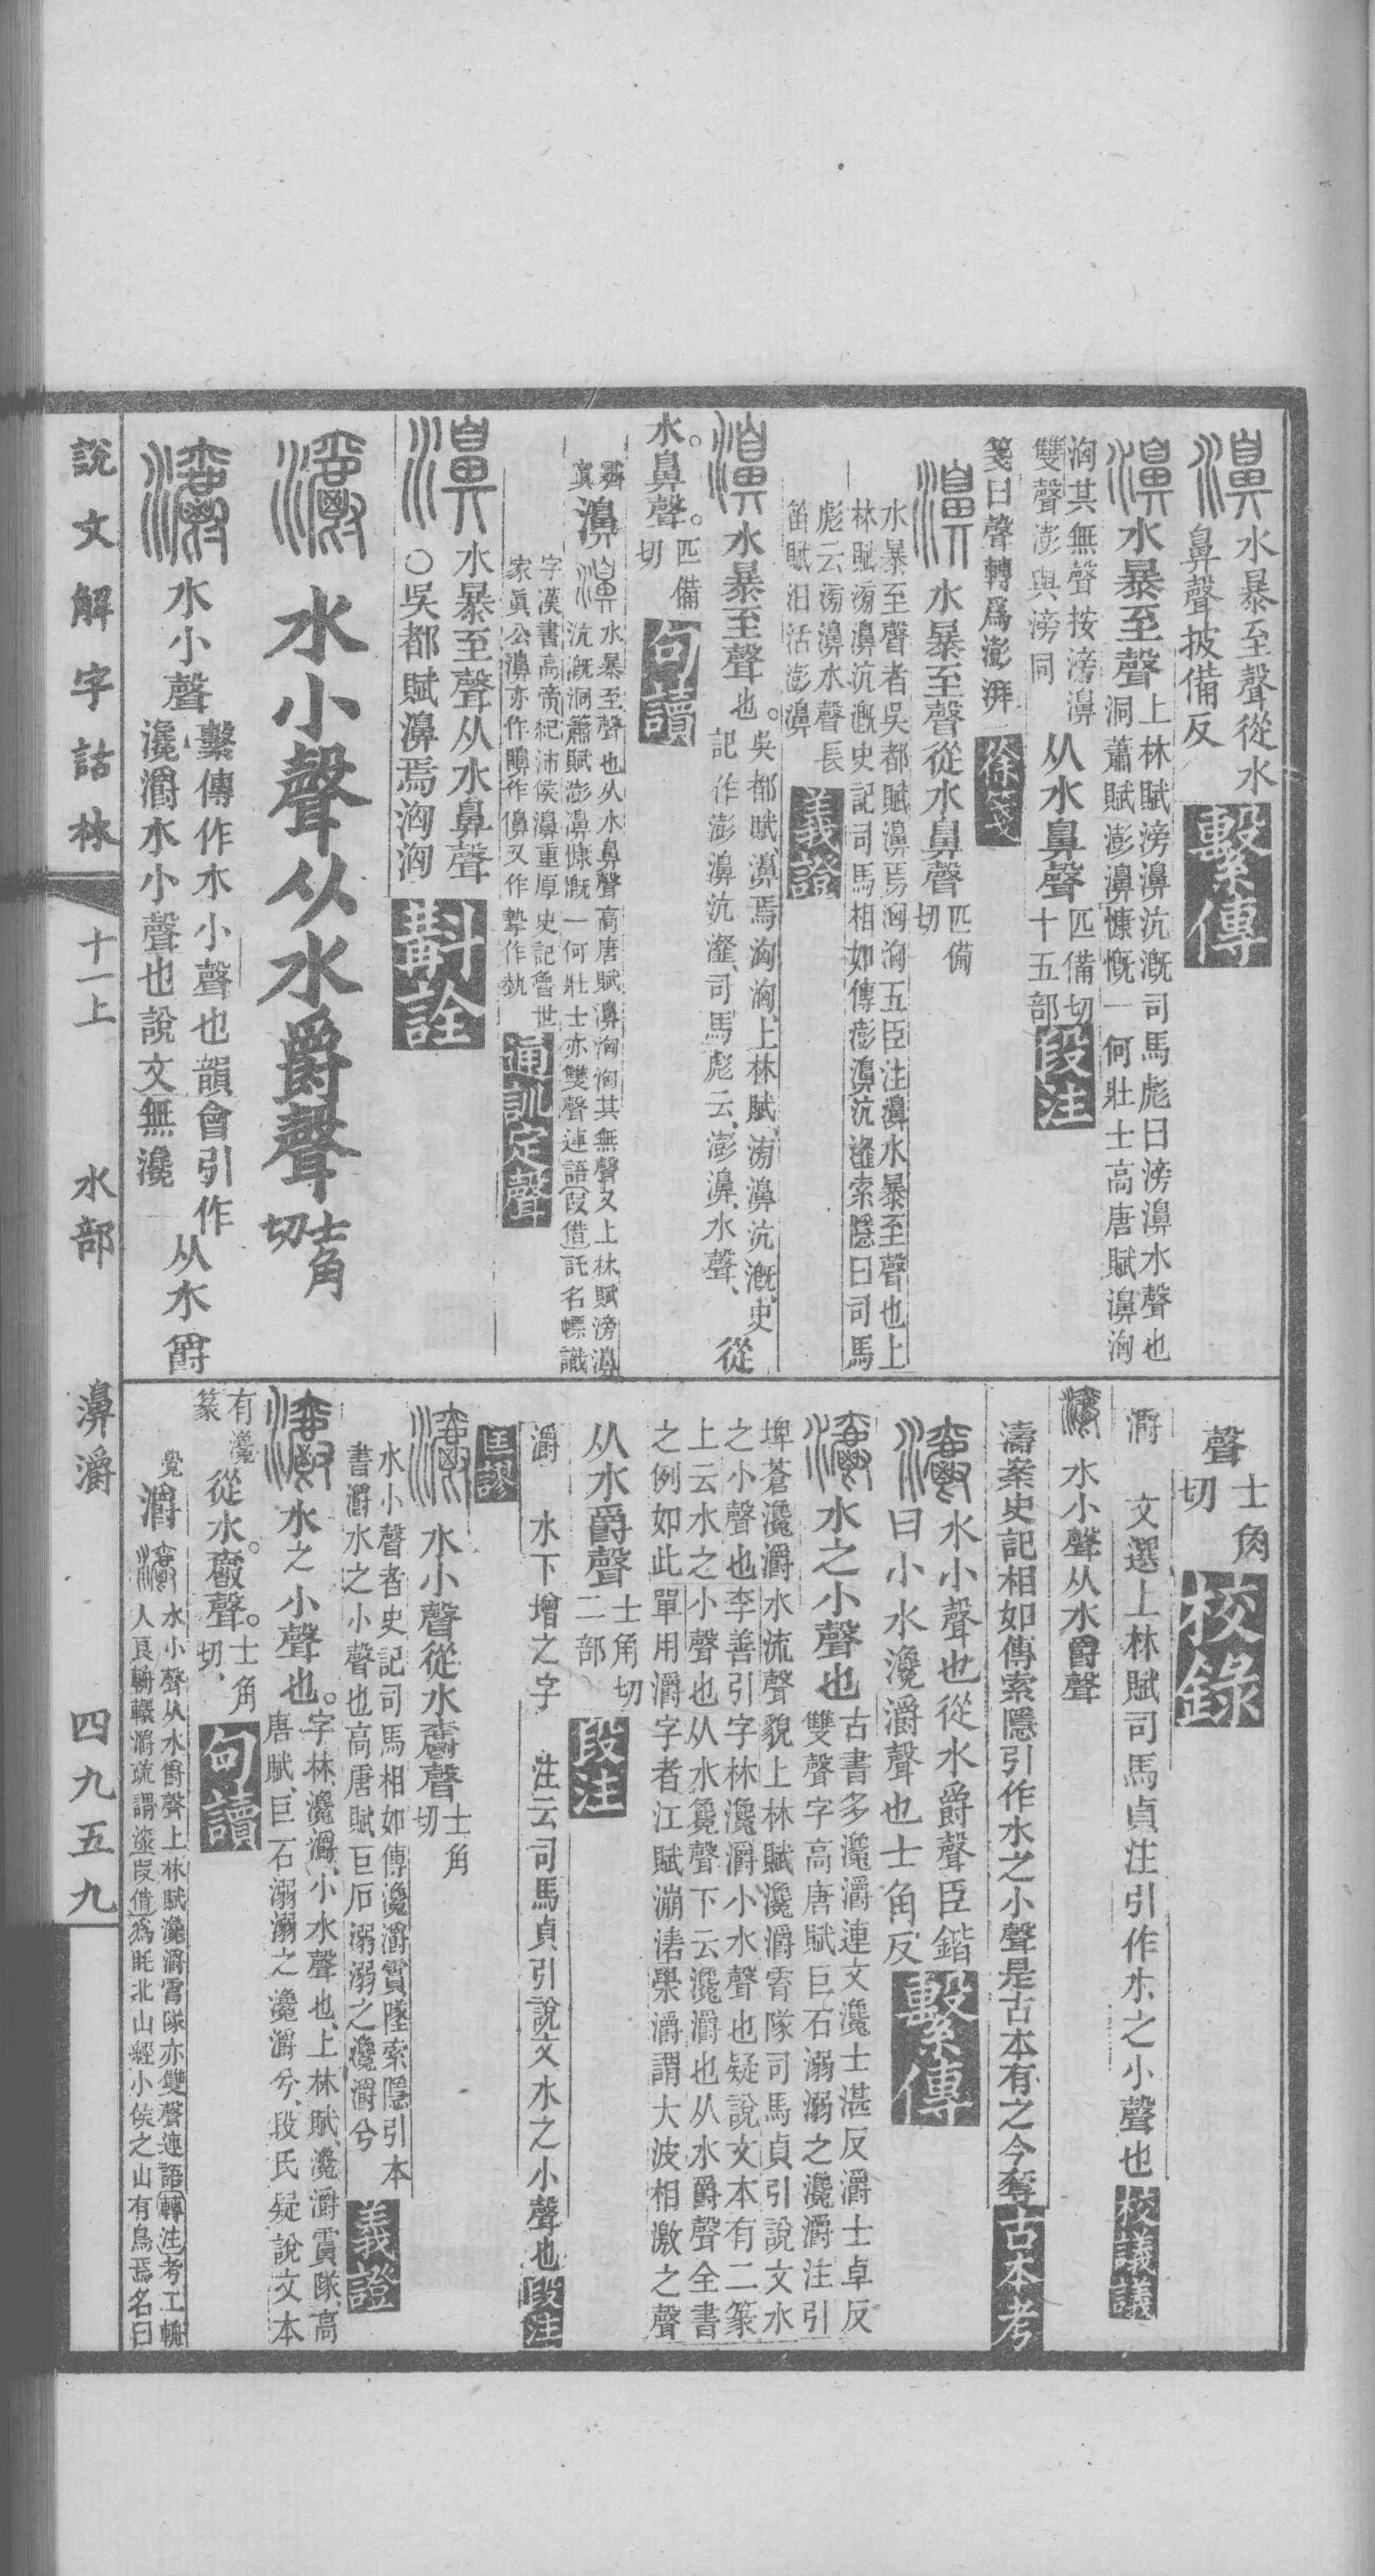 濞 水暴至聲從水
鼻聲披備反 繫傳
濞 水暴至聲 上林賦滂濞沆溉司馬彪曰滂濞水聲也
洞蕭賦澎濞慷慨一何壯士高唐賦濞洶
洶其無聲按滂濞
雙聲澎與滂同 从水鼻聲 匹備切
十五部 段注
箋曰聲轉爲澎湃 徐箋
濞 水暴至聲從水鼻聲 匹備
切
水暴至聲者吳都賦濞焉洶洶五臣注濞水暴至聲也上
林賦滂濞沆溉史記司馬相如傳澎濞沆瀣索隱曰司馬
彪云滂濞水聲長
笛賦汨活澎濞 義證
濞 水暴至聲也。吳都賦、濞焉洶洶、上林賦、滂濞沆溉、史
記作澎濞沆瀣、司馬彪云、澎濞、水聲、 從
水。鼻聲。匹備
切 句讀
濞 濞 水暴至聲也从水鼻聲高唐賦濞洶洶其無聲又上林賦滂濞
沆溉洞蕭賦澎濞慷慨一何壯士亦雙聲連語 叚借 託名幖識
字漢書高帝紀沛侯濞重厚史記魯世
家眞公濞亦作嚊作僼又作摯作埶 通訓定聲
濞 水暴至聲从水鼻聲
○吳都賦濞焉洶洶 斠詮
灂 水小聲从水爵聲 士角
切
灂 水小聲 繫傳作水小聲也韻會引作
瀺灂水小聲也說文無瀺 从水爵
聲 士角
切 校錄
灂 文選上林賦司馬貞注引作水之小聲也 校議議
灂 水小聲从水爵聲
濤案史記相如傳索隱引作水之小聲是古本有之今奪 古本考
灂 水小聲也從水爵聲臣鍇
曰小水瀺灂聲也士角反 繫傳
灂 水之小聲也 古書多瀺灂連文瀺士湛反灂士卓反
雙聲字高唐賦巨石溺溺之瀺灂注引
埤蒼瀺灂水流聲貌上林賦瀺灂霣隊司馬貞引說文水
之小聲也李善引字林瀺灂小水聲也疑說文本有二篆
上云水之小聲也从水毚聲下云瀺灂也从水爵聲全書
之例如此單用灂字者江賦漰湱澩灂謂大波相激之聲
从水爵聲 士角切
二部 段注
灂 水下增之字 注云司馬貞引說文水之小聲也 段注
馬謬
灂 水小聲從水爵聲 士角
切
水小聲者史記司馬相如傳瀺灂霣墜索隱引本
書灂水之小聲也高唐賦巨石溺溺之瀺灂兮 義證
灂 水之小聲也。字林、瀺灂、小水聲也、上林賦、瀺灂霣隊、高
唐賦、巨石溺溺之瀺灂兮、段氏疑說文本
有瀺
篆 從水。爵聲。士角
切、 句讀
灂 灂 水小聲从水爵聲上林賦瀺灂霣隊亦雙聲連語 轉注 考工輈
人良輈環灂疏謂漆 叚借 爲眊北山經小侯之山有鳥焉名曰
說文解字詁林 十一上 水部 濞灂 四九五九